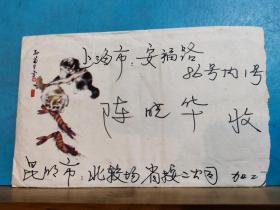 上海市：安福路
86号内1号
陈晓华 收
昆明市：北较场省投二公司